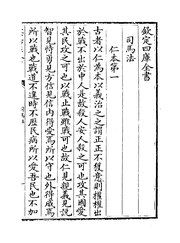 欽定四庫全書
司馬法
仁本第一
古者以仁為本以義治之之謂正正不獲意則權權出
於戰不出於中人是故殺人安人殺之可也攻其國愛
其民攻之可也以戰止戰雖戰可也故仁見親義見説
智見恃勇見方信見信内得愛焉所以守也外得威焉
所以戰也戰道不違時不歷民病所以愛吾民也不加